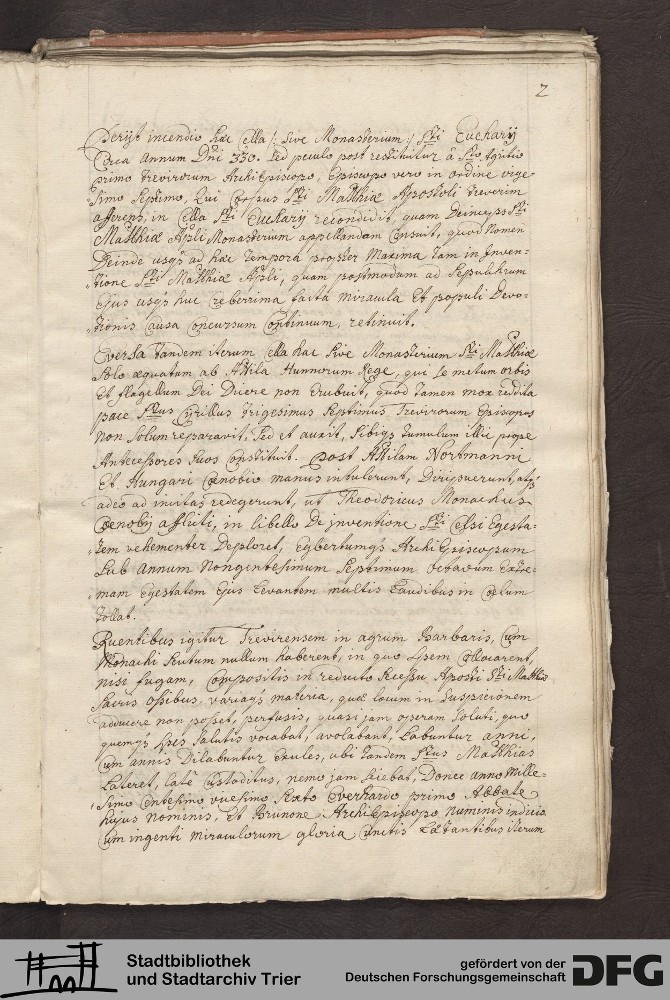 2
Perijt incendio hæc Cella /: sive Monasterium :/ Sti Eucharij
Circa Annum Dni 330. sed paulo post restituitur à Sto Agritio
primo Trevirorum ArchiEpiscopo, Episcopo vero in ordine vige-
simo septimo, Qui Corpus Sti Matthiæ Apostoli Treverim
afferens, in Cella Sti Eucharij recondidit, quam deinceps Sti
Matthiæ Apli Monasterium appellandam Censuit, quod Nomen
Deinde usqs ad hæc tempora propter Maxima tam in Inven-
tione Sti Matthiæ Apli, quam postmodum ad Sepulchrum
Ejus usqs huc creberrima facta miracula Et populi Devo-
tionis Causa Concursum Continuum, retinuit.
Eversa tandem iterum Cella hac sive Monasterium Sti Matthiæ
solo æquatum ab Attila Hunnorum Rege, qui se metum orbis
Et flagellum Dei Dicere non Erubuit, quod tamen mox reddita
pace Stus Cyrillus trigesimus Septimus Trevirorum Episcopus
Non solum reparavit, sed et auxit, sibiqs tumulum illic prope
Antecessores suos Constituit. Post Attilam Nortmanni
Et Hungari Cœnobio manus intulerunt, Diripuerunt, atqs
adeo ad incitas redegerunt, ut Theodoricus Monachus
Cœnobij afflicti, in libello De inventione Sti Celsi Egesta-
tem vehementer Deploret, Egbertumqs ArchiEpiscopum
sub Annum Nongentesimum Septimum Octavum Extre-
mam Egestatem Ejus Levantem multis Laudibus in Cœlum
tollat.
Ruentibus igitur Trevirensem in agrum Barbaris, Cum
Monachi scutum nullum haberent, in quo spem Collocarent,
nisi fugam, Compositis in reducto Recessu Aposti Sti Matthiæ
sacris Ossibus, variaqs materia, quæ locum in suspicionem
adducere non posset, perfusis, quasi jam operam soluti, quo
quemqs spes salutis vocabat, avolabant, Labuntur anni,
Cum annis Dilabuntur Exules, ubi tandem Stus Matthias
Lateret, latè Custoditus, nemo jam sciebat, Donec anno Mille-
simo Centesimo vicesimo sexto Everhardo primo Abbate
hujus Nominis, Et Brunone ArchiEpiscopo Numinis indicio
Cum ingenti miraculorum gloria Cunctis Lætantibus iterum
Stadtbibliothek
und Stadtarchiv Trier
gefördert von der
Deutschen Forschungsgemeinschaft
DFG